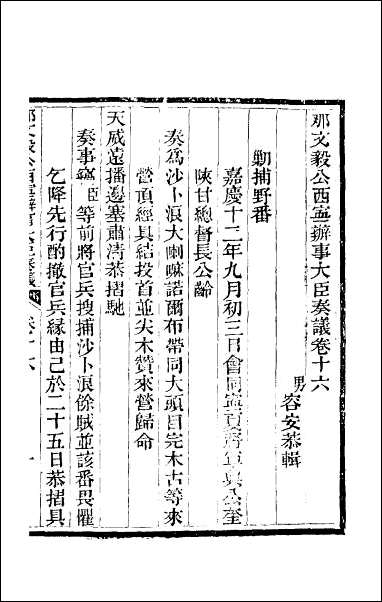 那文毅公西寧辦事大臣奏議卷十六
男 容安恭輯
剿捕野番
嘉慶十二年九月初三日會同寧夏將軍興公奎
陝甘總督長公齡
奏為沙卜浪大喇嘛諾爾布帶同大頭目完木古等來
營頂經具結投首並尖木贊來營歸命
天威遠播邊塞肅清恭摺馳
奏事竊臣等前將官兵搜捕沙卜浪餘賊並該番畏罹
乞降先行酌撤官兵緣由已於二十五日恭摺具
那文毅公西寧辦事大臣奏議 卷十六 一